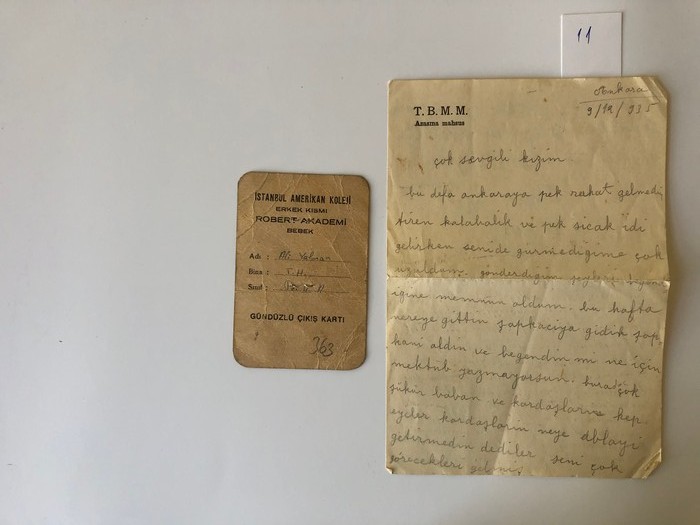 11
İSTANBUL AMERİKAN KOLEJİ
ERKEK KISMI
ROBERT AKADEMİ
BEBEK
Adı : Ali
Bina :
Sınıf :
GÜNDÜZLÜ ÇIKIŞ KARTI
363
Ankara
9/12/935
T. B. M. M.
Azasına mahsus
çok sevgili kızım
bu defa ankaraya pek rahat gelmedim
tiren kalabalık ve pek sıcak idi
gelirken senide gurmediğime çok
üzüldüm. gönderdiğim şeyleri
iğine memnun oldum. bu hafta
nereye gittin şapkacıya gidik şap
kani aldin ve begendin mi ne için
mektub yazmayorsun. burada çok
şükür baban ve kardaşların hep
eyiler kardaşların neye ablayi
getirmedin dediler seni çok
görecekleri gelmiş